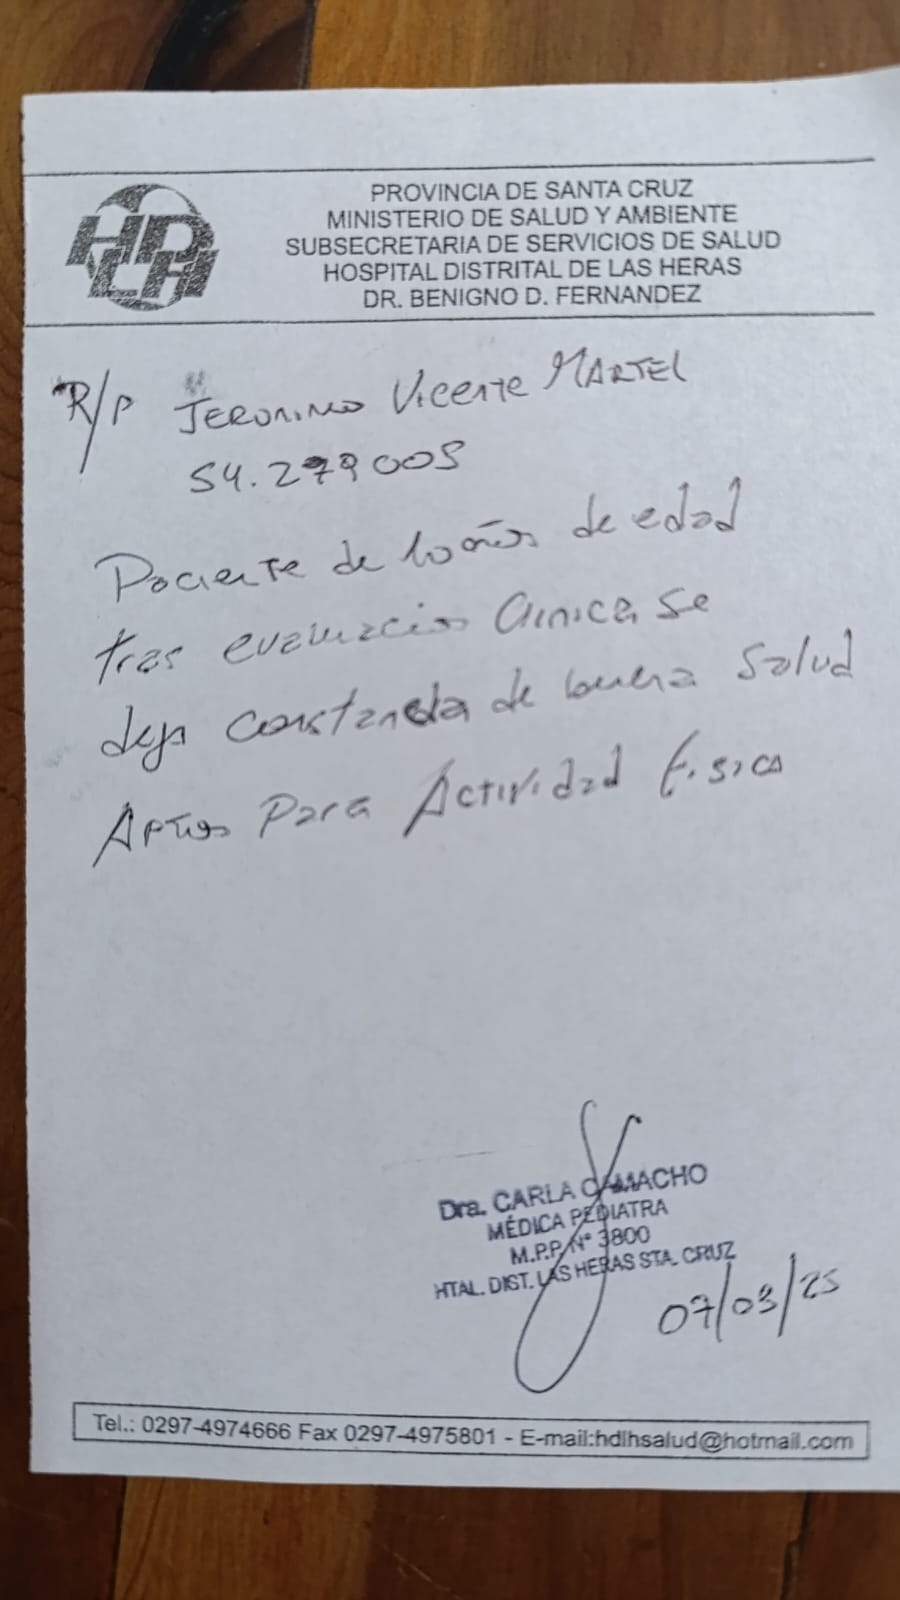 HDLH
PROVINCIA DE SANTA CRUZ
MINISTERIO DE SALUD Y AMBIENTE
SUBSECRETARIA DE SERVICIOS DE SALUD
HOSPITAL DISTRITAL DE LAS HERAS
DR. BENIGNO D. FERNANDEZ
R/P JERONIMO Vicente MARTEL
54.279005
Paciente de 10 años de edad
tras evaluación Clínica se
deja constancia de buena Salud
Aptos Para Actividad física
Dra. CARLA CAMACHO
MÉDICA PEDIATRA
M.P.P. N° 3800
HTAL. DIST. LAS HERAS STA. CRUZ
07/03/25
Tel.: 0297-4974666 Fax 0297-4975801 - E-mail:hdlhsalud@hotmail.com